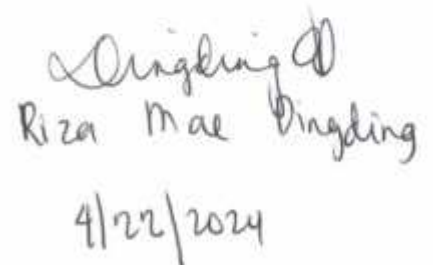 Dingding
Riza Mae Dingding
4/22/2024